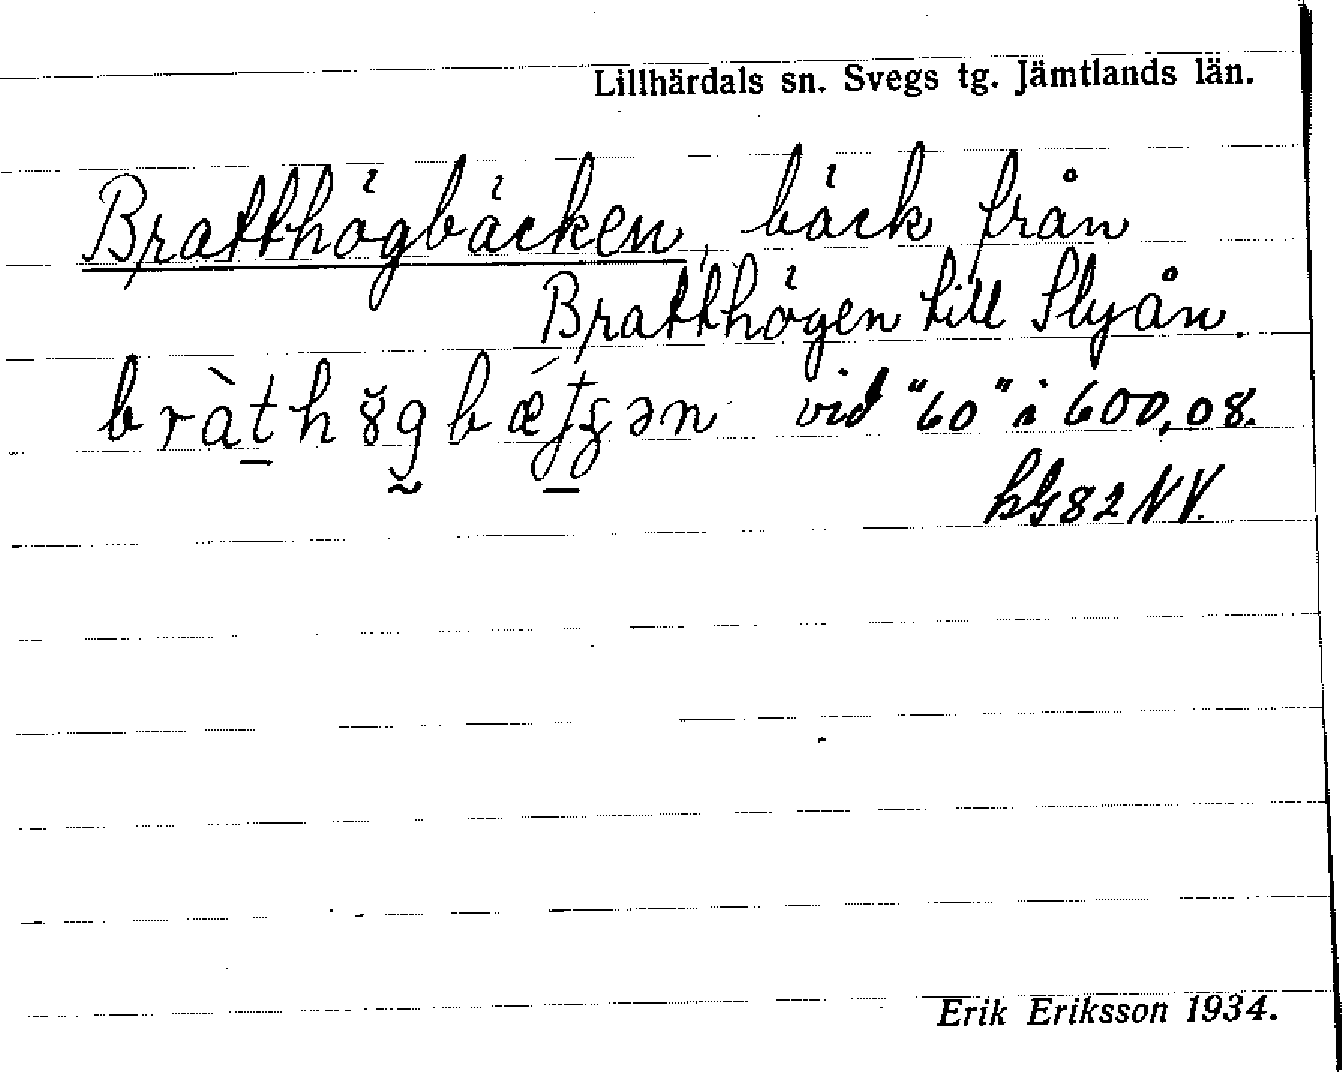 Lillhärdals sn. Svegs tg. Jämtlands län.
Bratthögbäcken, bäck från
Bratthögen till Slyån.
vid "60" i 600,08.
82 NV.
Erik Eriksson 1934.